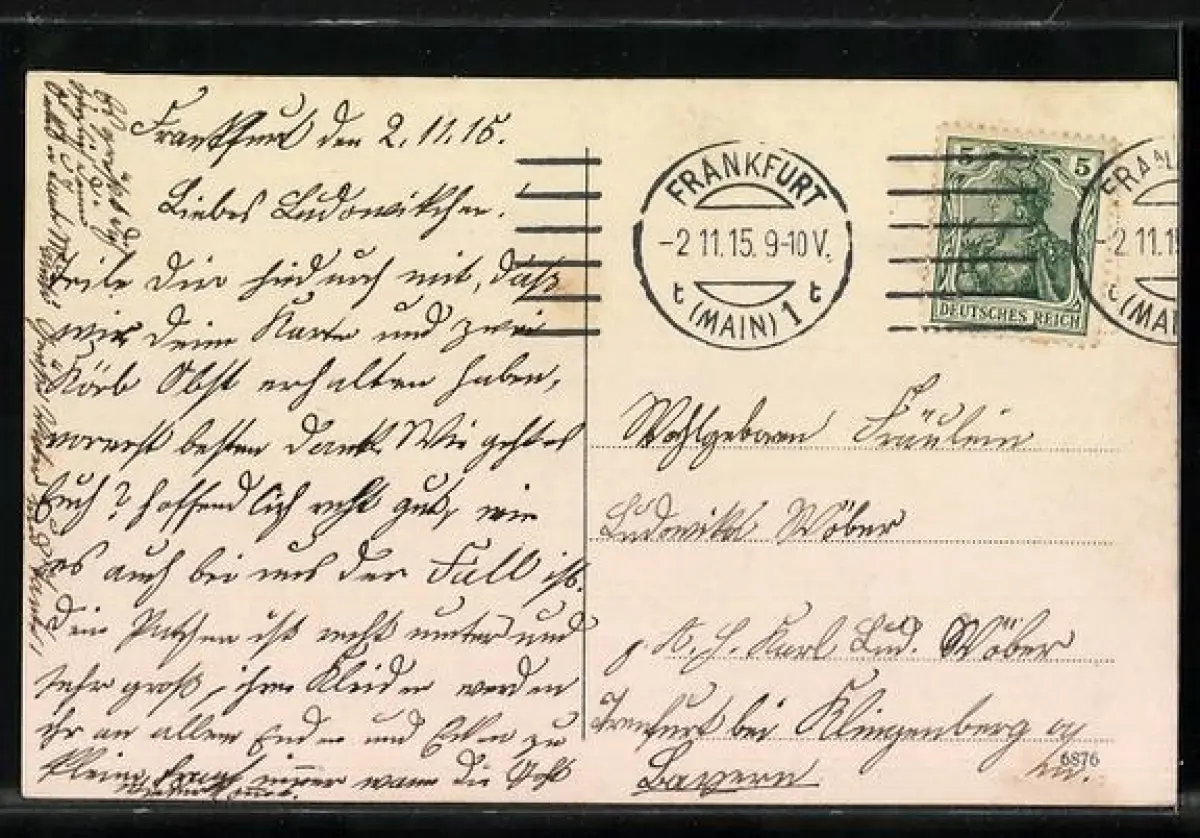 Frankfurt den 2.11.15.
Liebes Ludowikchen.
teile Dir hiedurch mit, daß
wir deine Karte und zwei
Körb Obst erhalten haben,
vorerst besten Dank. Wie geht es
Euch? hoffendlich recht gut, wie
es auch bei uns der Fall ist.
Dein Patchen ist recht munter und
sehr groß, ihre Kleider werden
ihr an allen Enden und Ecken zu
klein, fragt immer wann die Gohl
FRANKFURT
-2.11.15. 9-10 V.
t (MAIN) 1 t
5 5
DEUTSCHES REICH
FRA
-2.11.15
t (MA
Wohlgeboren Fräulein
Ludowika Wöber
p. A. H. Karl Lud. Wöber
Trennfurt bei Klingenberg a/
M.
Bayern
6876